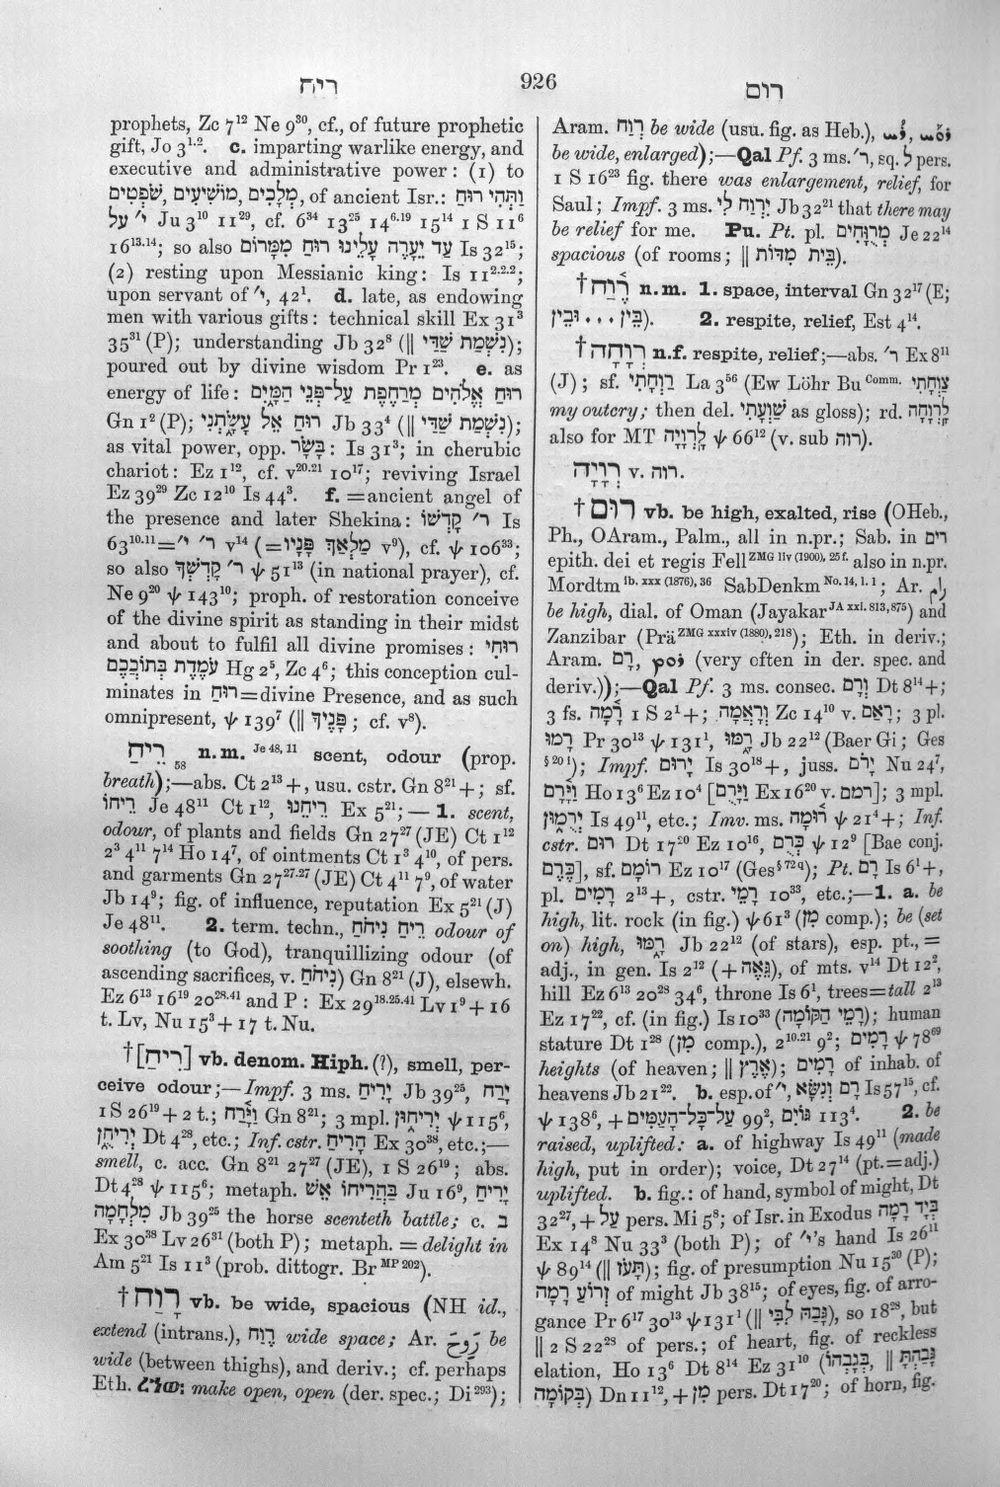 ריח
926
רום
prophets, Zc 7¹² Ne 9³⁰, cf., of future prophetic
gift, Jo 3¹·². c. imparting warlike energy, and
executive and administrative power: (1) to
מְלָכִים, מוֹשִׁיעִים, שֹׁפְטִים, of ancient Isr.: וַתְּהִי רוּחַ
עַל י׳ Ju 3¹⁰ 11²⁹, cf. 6³⁴ 13²⁵ 14⁶·¹⁹ 15¹⁴ 1 S 11⁶
16¹³·¹⁴; so also עַד יֵעָרֶה עָלֵינוּ רוּחַ מִמָּרוֹם Is 32¹⁵;
(2) resting upon Messianic king: Is 11²·²·²;
upon servant of י׳, 42¹. d. late, as endowing
men with various gifts: technical skill Ex 31³
35³¹ (P); understanding Jb 32⁸ (‖ נִשְׁמַת שַׁדַּי);
poured out by divine wisdom Pr 1²³. e. as
energy of life: רוּחַ אֱלֹהִים מְרַחֶפֶת עַל־פְּנֵי הַמָּיִם
Gn 1² (P); רוּחַ אֵל עָשָׂתְנִי Jb 33⁴ (‖ נִשְׁמַת שַׁדַּי);
as vital power, opp. בָּשָׂר: Is 31³; in cherubic
chariot: Ez 1¹², cf. v²⁰·²¹ 10¹⁷; reviving Israel
Ez 39²⁹ Zc 12¹⁰ Is 44³. f. =ancient angel of
the presence and later Shekina: ר׳ קָדְשׁוֹ Is
63¹⁰·¹¹=ר׳ י׳ v¹⁴ (=מַלְאַךְ פָּנָיו v⁹), cf. ψ 106³³;
so also ר׳ קָדְשְׁךָ ψ 51¹³ (in national prayer), cf.
Ne 9²⁰ ψ 143¹⁰; proph. of restoration conceive
of the divine spirit as standing in their midst
and about to fulfil all divine promises: רוּחִי
עֹמֶדֶת בְּתוֹכְכֶם Hg 2⁵, Zc 4⁶; this conception cul-
minates in רוּחַ=divine Presence, and as such
omnipresent, ψ 139⁷ (‖ פָּנֶיךָ; cf. v⁸).
רֵיחַ 58 n.m. Je 48, 11 scent, odour (prop.
breath);—abs. Ct 2¹³ +, usu. cstr. Gn 8²¹ +; sf.
רֵיחוֹ Je 48¹¹ Ct 1¹², רֵיחֵנוּ Ex 5²¹;— 1. scent,
odour, of plants and fields Gn 27²⁷ (JE) Ct 1¹²
2³ 4¹¹ 7¹⁴ Ho 14⁷, of ointments Ct 1³ 4¹⁰, of pers.
and garments Gn 27²⁷·²⁷ (JE) Ct 4¹¹ 7⁹, of water
Jb 14⁹; fig. of influence, reputation Ex 5²¹ (J)
Je 48¹¹. 2. term. techn., רֵיחַ נִיחֹחַ odour of
soothing (to God), tranquillizing odour (of
ascending sacrifices, v. נִיחֹחַ) Gn 8²¹ (J), elsewh.
Ez 6¹³ 16¹⁹ 20²⁸·⁴¹ and P: Ex 29¹⁸·²⁵·⁴¹ Lv 1⁹ + 16
t. Lv, Nu 15³ + 17 t. Nu.
†[רִיחַ] vb. denom. Hiph. (?), smell, per-
ceive odour;—Impf. 3 ms. יָרִיחַ Jb 39²⁵, יָרַח
1 S 26¹⁹ + 2 t.; וַיָּרַח Gn 8²¹; 3 mpl. יְרִיחוּן ψ 115⁶,
יְרִיחֻן Dt 4²⁸, etc.; Inf. cstr. הָרִיחַ Ex 30³⁸, etc.;—
smell, c. acc. Gn 8²¹ 27²⁷ (JE), 1 S 26¹⁹; abs.
Dt 4²⁸ ψ 115⁶; metaph. בַּהֲרִיחוֹ אֵשׁ Ju 16⁹, יָרִיחַ
מִלְחָמָה Jb 39²⁵ the horse scenteth battle; c. ב
Ex 30³⁸ Lv 26³¹ (both P); metaph. = delight in
Am 5²¹ Is 11³ (prob. dittogr. Br MP 202).
†רָוַח vb. be wide, spacious (NH id.,
extend (intrans.), רֶוַח wide space; Ar. رَوِحَ be
wide (between thighs), and deriv.; cf. perhaps
Eth. make open, open (der. spec.; Di²⁹³);
Aram. רְוַח be wide (usu. fig. as Heb.),
be wide, enlarged);—Qal Pf. 3 ms. ר׳, sq. לְ pers.
1 S 16²³ fig. there was enlargement, relief, for
Saul; Impf. 3 ms. יִרְוַח לִי Jb 32²¹ that there may
be relief for me. Pu. Pt. pl. מְרֻוָּחִים Je 22¹⁴
spacious (of rooms; ‖ בֵּית מִדּוֹת).
†רֶ֫וַח n.m. 1. space, interval Gn 32¹⁷ (E;
בֵּין . . . וּבֵין). 2. respite, relief, Est 4¹⁴.
†רְוָחָה n.f. respite, relief;—abs. ר׳ Ex 8¹¹
(J); sf. רַוְחָתִי La 3⁵⁶ (Ew Löhr Bu Comm. צַוְחָתִי
my outcry; then del. שַׁוְעָתִי as gloss); rd. לָרְוָחָה
also for MT לָרְוָיָה ψ 66¹² (v. sub רוה).
רְוָיָה v. רוה.
†רוּם vb. be high, exalted, rise (OHeb.,
Ph., OAram., Palm., all in n.pr.; Sab. in רים
epith. dei et regis Fell ZMG liv (1900), 25 f. also in n.pr.
Mordtm ib. xxx (1876), 36 SabDenkm No. 14, l. 1; Ar. رام
be high, dial. of Oman (Jayakar JA xxi. 813, 875) and
Zanzibar (Prä ZMG xxxiv (1880), 218); Eth. in deriv.;
Aram. רָם, ܪܘܡ (very often in der. spec. and
deriv.));—Qal Pf. 3 ms. consec. וְרָם Dt 8¹⁴ +;
3 fs. רָ֫מָה 1 S 2¹ +; וְרָאֲמָה Zc 14¹⁰ v. רָאַם; 3 pl.
רָמוּ Pr 30¹³ ψ 131¹, רָמּוּ Jb 22¹² (Baer Gi; Ges
§ 20 i); Impf. יָרוּם Is 30¹⁸ +, juss. יָרֹם Nu 24⁷,
וַיָּרָם Ho 13⁶ Ez 10⁴ [וַיָּרֻם Ex 16²⁰ v. רמם]; 3 mpl.
יְרֻמוּן Is 49¹¹, etc.; Imv. ms. ר֫וּמָה ψ 21⁴ +; Inf.
cstr. רוּם Dt 17²⁰ Ez 10¹⁶, כְּרֻם ψ 12⁹ [Bae conj.
כֶּרֶם], sf. רוֹמָם Ez 10¹⁷ (Ges § 72 q); Pt. רָם Is 6¹ +,
pl. רָמִים 2¹³ +, cstr. רָמֵי 10³³, etc.;—1. a. be
high, lit. rock (in fig.) ψ 61³ (מִן comp.); be (set
on) high, רָמּוּ Jb 22¹² (of stars), esp. pt., =
adj., in gen. Is 2¹² (+ גֵּאֶה), of mts. v¹⁴ Dt 12²,
hill Ez 6¹³ 20²⁸ 34⁶, throne Is 6¹, trees=tall 2¹³
Ez 17²², cf. (in fig.) Is 10³³ (רָמֵי הַקּוֹמָה); human
stature Dt 1²⁸ (מִן comp.), 2¹⁰·²¹ 9²; רָמִים ψ 78⁶⁹
heights (of heaven; ‖ אֶרֶץ); רָמִים of inhab. of
heavens Jb 21²². b. esp. of י׳, רָם וְנִשָּׂא Is 57¹⁵, cf.
ψ 138⁶, + עַל־כָּל־הָעַמִּים 99², גּוֹיִם 113⁴. 2. be
raised, uplifted: a. of highway Is 49¹¹ (made
high, put in order); voice, Dt 27¹⁴ (pt.=adj.)
uplifted. b. fig.: of hand, symbol of might, Dt
32²⁷, + עַל pers. Mi 5⁸; of Isr. in Exodus בְּיָד רָמָה
Ex 14⁸ Nu 33³ (both P); of י׳'s hand Is 26¹¹
ψ 89¹⁴ (‖ תָּעֹז); fig. of presumption Nu 15³⁰ (P);
זְרוֹעַ רָמָה of might Jb 38¹⁵; of eyes, fig. of arro-
gance Pr 6¹⁷ 30¹³ ψ 131¹ (‖ גָּבַהּ לִבִּי), so 18²⁸, but
‖ 2 S 22²⁸ of pers.; of heart, fig. of reckless
elation, Ho 13⁶ Dt 8¹⁴ Ez 31¹⁰ (בְּגָבְהוֹ, ‖ גָּבַהְתָּ
בְּקוֹמָה) Dn 11¹², + מִן pers. Dt 17²⁰; of horn, fig.